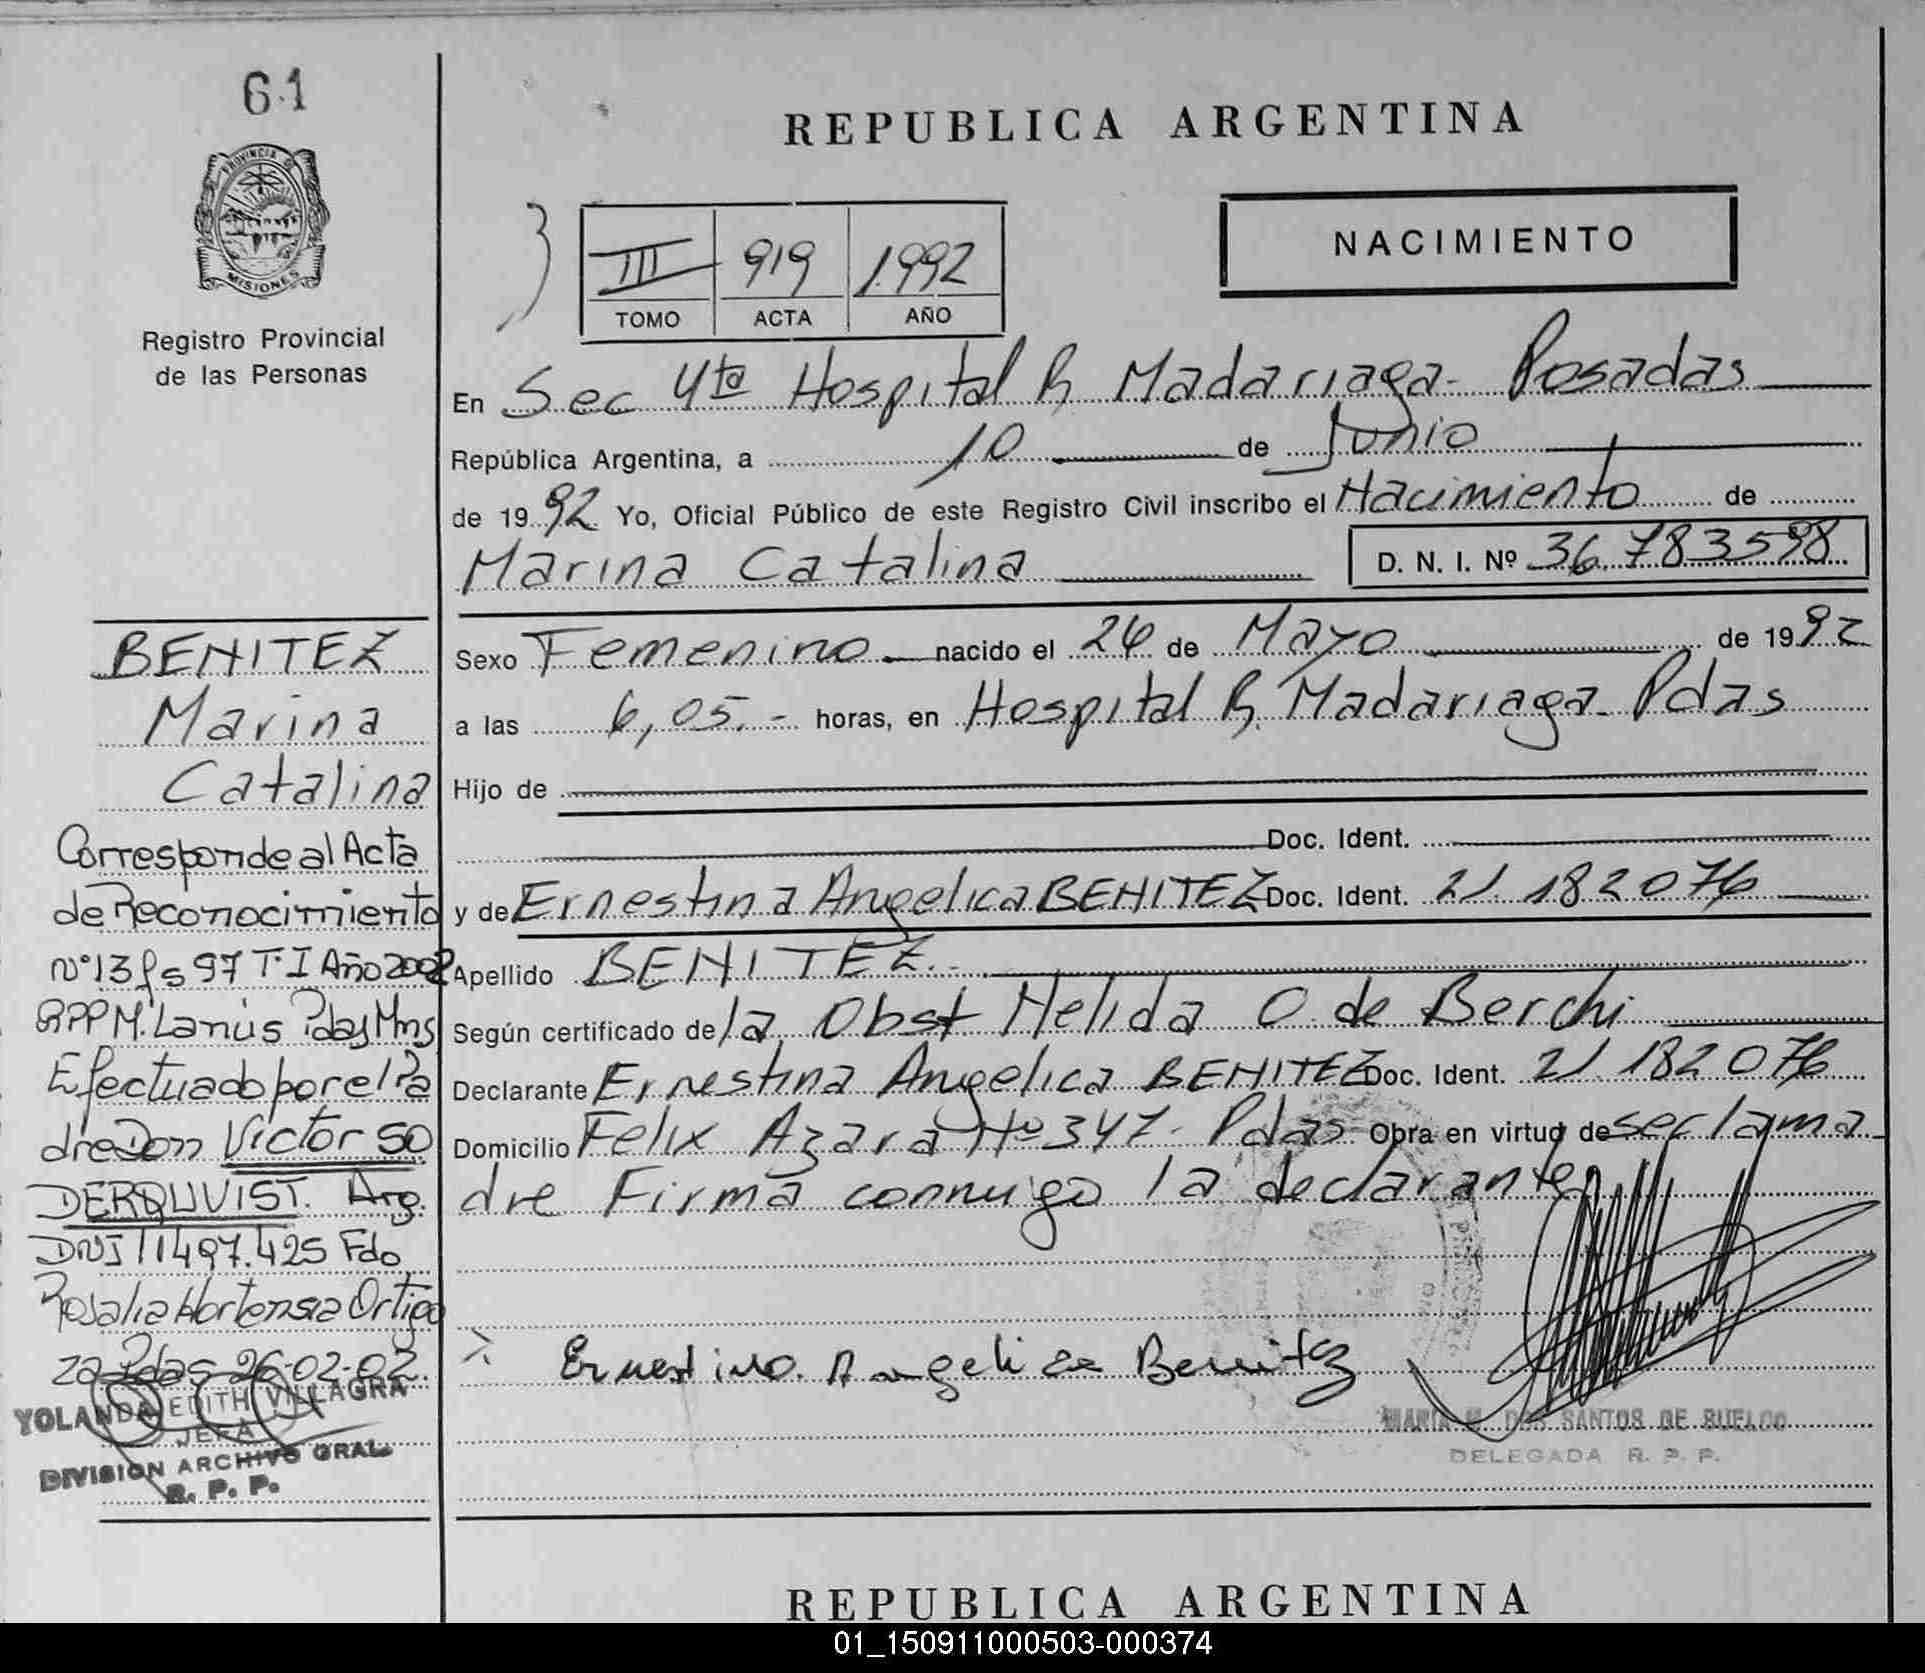 61
PROVINCIA DE
MISIONES
Registro Provincial
de las Personas
REPUBLICA ARGENTINA
III 919 1.992
TOMO ACTA AÑO
NACIMIENTO
En Sec 4ta Hospital R. Madariaga- Posadas
República Argentina, a 10 de Junio
de 1992 Yo, Oficial Público de este Registro Civil inscribo el Nacimiento de
Marina Catalina D. N. I. Nº 36.783598
Sexo Femenino nacido el 26 de Mayo de 1992
a las 6,05.- horas, en Hospital R. Madariaga- Pdas
Hijo de
Doc. Ident.
y de Ernestina Angelica BENITEZ Doc. Ident. 21.182076
Apellido BENITEZ.-
Según certificado de la Obst Nelida O de Berchi
Declarante Ernestina Angelica BENITEZ Doc. Ident. 21.182076
Domicilio Felix Azara Nº 347- Pdas Obra en virtud de ser la ma
dre Firma conmigo la declarante
Ernestina Angelica Benitez
MARIA DOS SANTOS DE
DELEGADA R. P. P.
BENITEZ
Marina
Catalina
Corresponde al Acta
de Reconocimiento
Nº13 fs 97 T·I Año 2002
RPP M. Lanús Pdas Mns
Efectuado por el Pa
dre Don Victor SO
DERQUVIST. Arg.
DNI 11497.425 Fdo
Rosalia Hortensia Ortigo
za Pdas 26-02-02.
YOLANDA EDITH VILLAGRA
JEFA
DIVISION ARCHIVO GRAL.
R. P. P.
REPUBLICA ARGENTINA
01_150911000503-000374